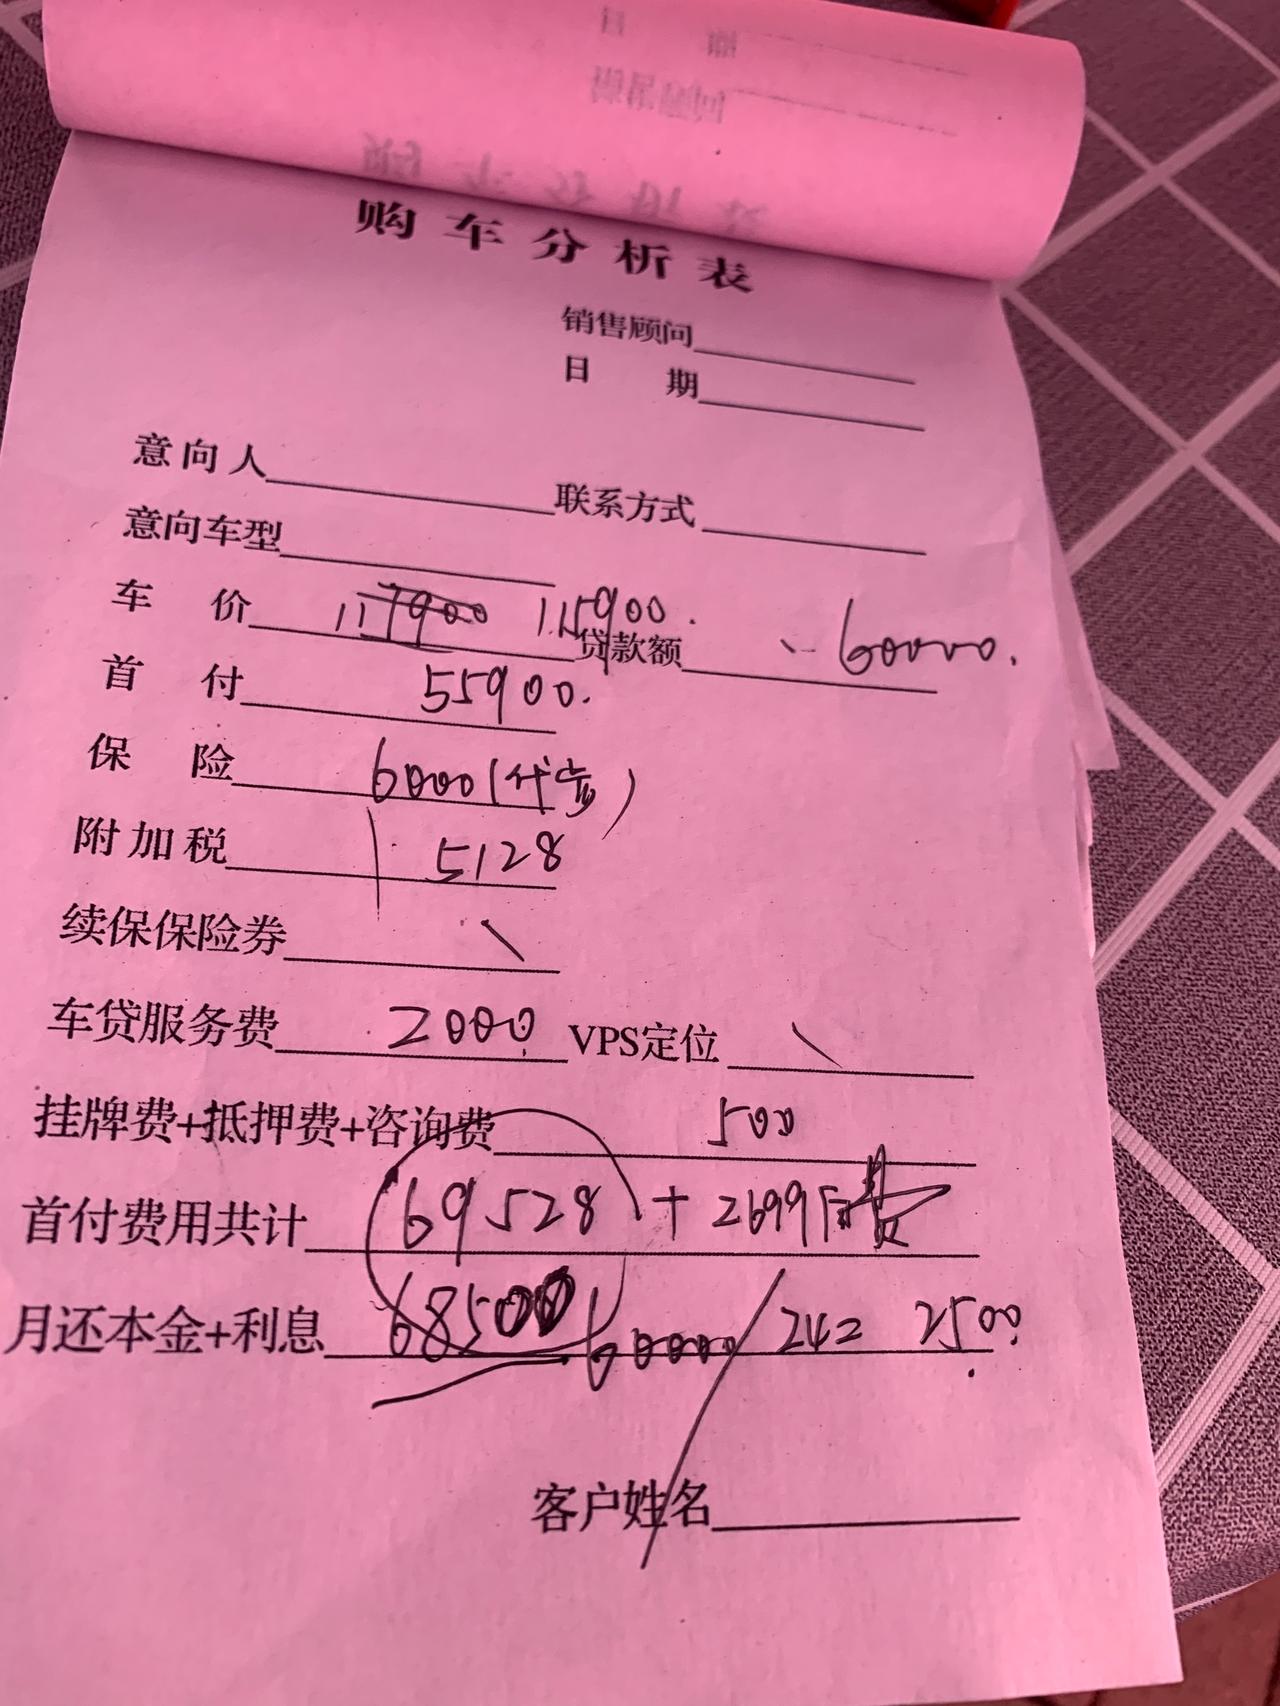 购车分析表
销售顾问
日 期
意向人 联系方式
意向车型
车 价 117900 115900. 贷款额 60000.
首 付 55900.
保 险 6000(代定)
附加税 5128
续保保险券 \
车贷服务费 2000 VPS定位 \
挂牌费+抵押费+咨询费 500
首付费用共计 69528 + 2699 费
月还本金+利息 68500 60000/24= 2500
客户姓名